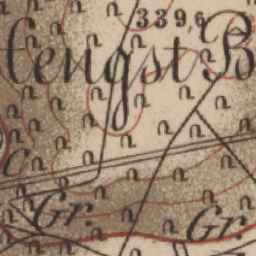 339,6
Hengst B
C
Gr.
Gr.